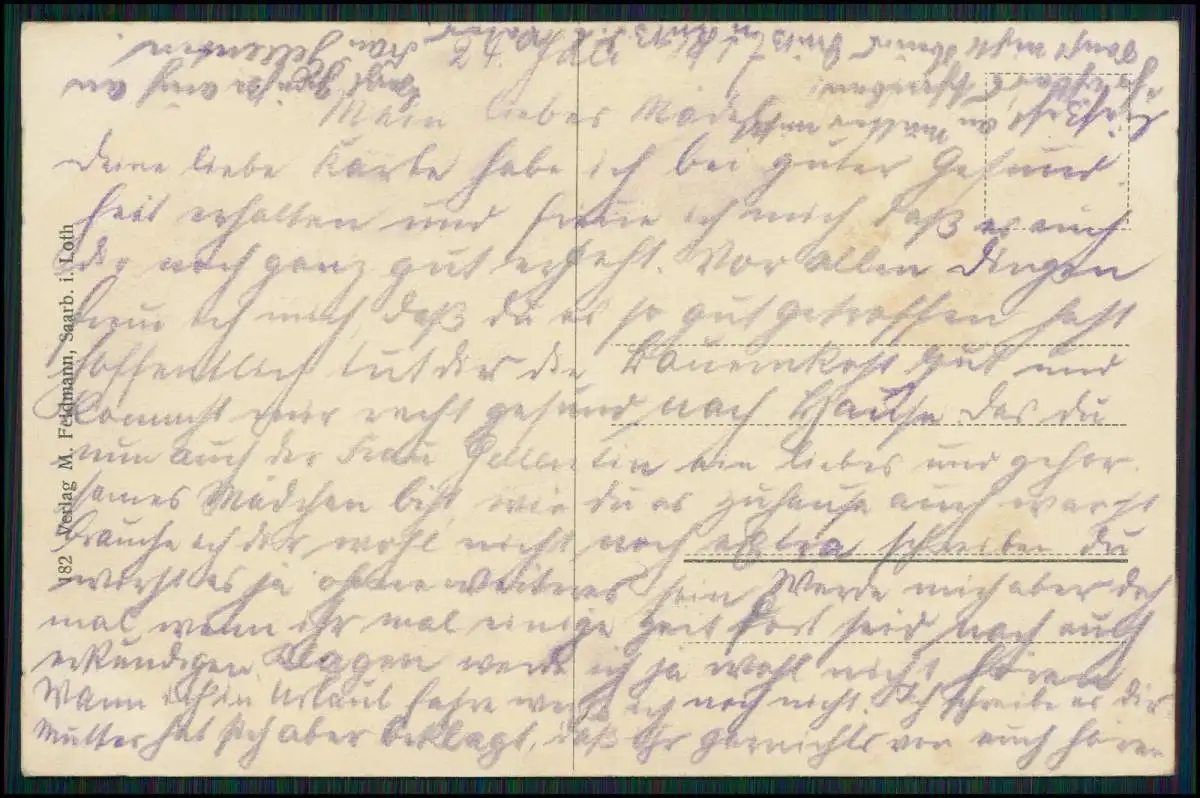 24. Juli
Mein liebes Mädel
Deine liebe Karte habe ich bei guter Gesund-
heit erhalten und freue ich mich daß es auch
dir noch ganz gut ergeht. Vor allen Dingen
freue ich mich, daß du es so gut getroffen hast
hoffentlich tut dir die Bauernkost gut und
kommst mir recht gesund nach Hause. Das du
nun auch der Frau ein liebes und gehor-
sames Mädchen bist, wie du es zuhause auch warst
brauche ich dir wohl nicht noch extra schreiben du
wirst es ja ohne weiteres sein. Werde mich aber doch
mal, wenn ihr mal einige Zeit fort seid nach euch
erkundigen. Klagen werde ich ja wohl nicht hören
Wann ich in Urlaub fahre weiß ich noch nicht. Ich schreibe es dir
Mutter hat sich aber beklagt, daß ihr garnichts von euch hören
182 Verlag M. Feldmann, Saarb. i. Loth